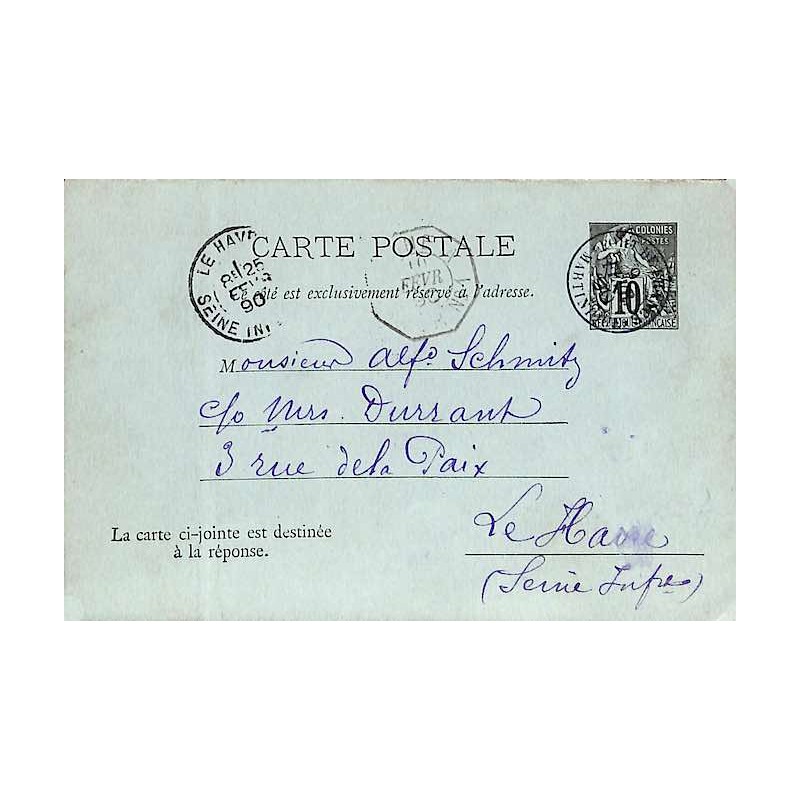 CARTE POSTALE
Ce côté est exclusivement réservé à l'adresse.
LE HAVR
8E 25
FEVR
90
SEINE INF
10
FEVR
90
COLONIES
POSTES
10
RÉPUBLIQUE FRANÇAISE
MARTINI
Monsieur Alfd Schmitz
c/o Mrs. Durrant
3 rue de la Paix
Le Havre
(Seine Infre)
La carte ci-jointe est destinée
à la réponse.